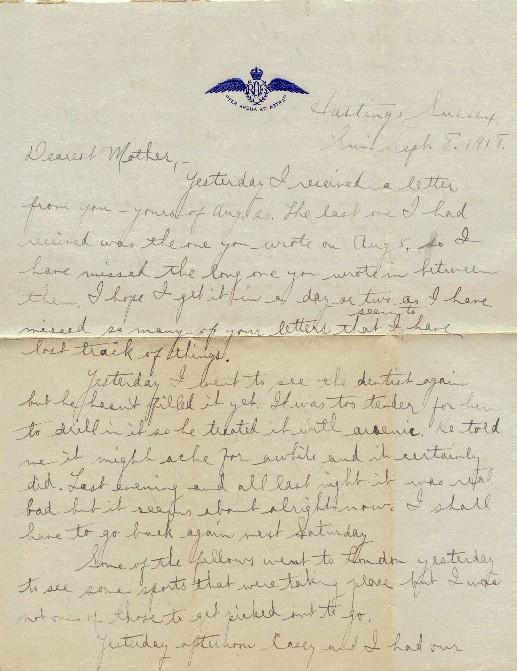 RFC
PER ARDUA AD ASTRA
Hastings, Sussex,
Sun. Sept. 8. 1918.
Dearest Mother,-
Yesterday I received a letter
from you - yours of Aug. 20. The last one I had
received was the one you wrote on Aug 5, so I
have missed the long one you wrote in between
them. I hope I get it in a day or two as I have
missed so many of your letters that I seem to have
lost track of things.
Yesterday I went to see the dentist again
but he hasn't filled it yet. It was too tender for him
to drill in it so he treated it with arsenic. He told
me it might ache for awhile and it certainly
did. Last evening and all last night it was real
bad but it seems about alright now. I shall
have to go back again next Saturday.
Some of the fellows went to London yesterday
to see some sports that were taking place but I was
not one of those to get picked out to go.
Yesterday afternoon Casey and I had our